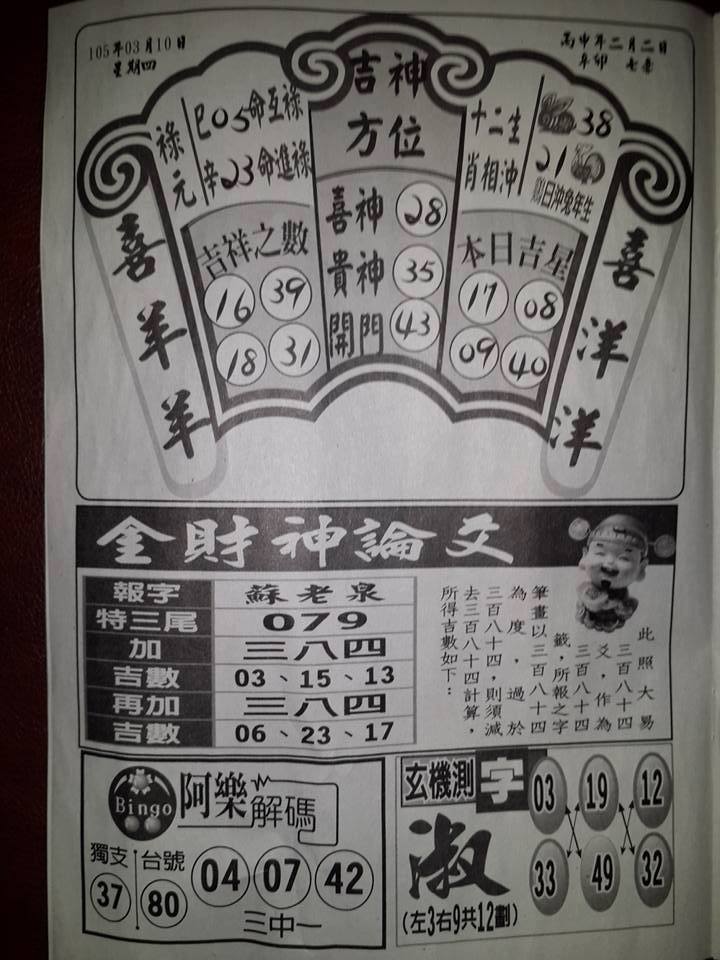 105年03月10日
星期四
丙申年二月二日
辛卯 七赤
吉神
方位
喜神 28
貴神 35
開門 43
祿元
巳05命互祿
辛23命進祿
吉祥之數
16 39
18 31
十二生
肖相沖
38
21
則日沖兔年生
本日吉星
17 08
09 40
喜羊羊
喜洋洋
金財神論爻
報字 蘇老泉
特三尾 079
加 三八四
吉數 03、15、13
再加 三八四
吉數 06、23、17
此照大易
三百八十四
爻，作為
三百八十四
籤，所報之字
筆畫以三百八十四
為度，過於
三百八十四，則須減
去三百八十四計算，
所得吉數如下：
Bingo
阿樂解碼
獨支 台號
37 80
04 07 42
三中一
玄機測字
淑
(左3右9共12劃)
03 19 12
33 49 32